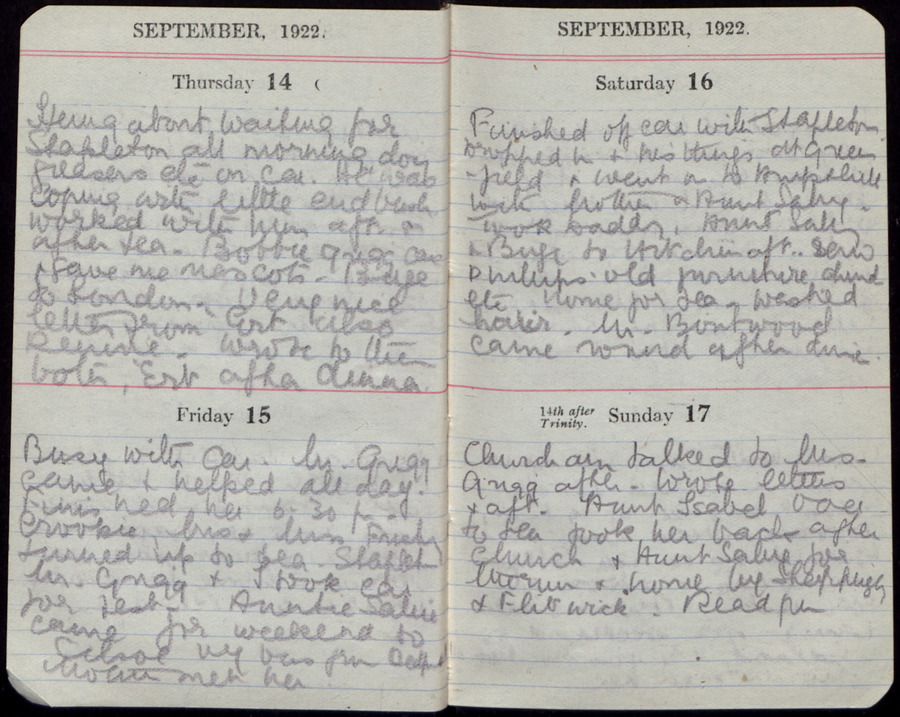 SEPTEMBER, 1922.
Thursday 14
about waiting for
Stapleton all morning doing
greasers etc on car. He was
coping with little end bush
worked with him aft. &
after tea. Bobbie Grigg
& gave me mascots.
to London. nice
letter from Ert also
wrote to them
both, Ert after dinner.
Friday 15
Busy with car. Mr. Grigg
came & helped all day.
Finished her 6.30 p.
Mrs & Miss
turned up to tea. Staplet
Mr. Grigg & I took car
for test. Auntie Salvie
came for weekend to
by bus from
Mother met her
SEPTEMBER, 1922.
Saturday 16
Finished off car with Stapleton.
Dropped him & his things at Green
-field & went on to Ampthill
with Mother & Aunt Salvie.
Took Daddy, Aunt Salv
& to Hitchin aft..
Phillips' old furniture
etc home for tea. Washed
hair. Mr.
came round after dinn.
14th after Trinity. Sunday 17
Church am talked to Mrs.
Grigg after. Wrote letters
& aft. Aunt Isabel
to tea took her back after
Church & Aunt Salvie for
the run & home by
& Flitwick. Read